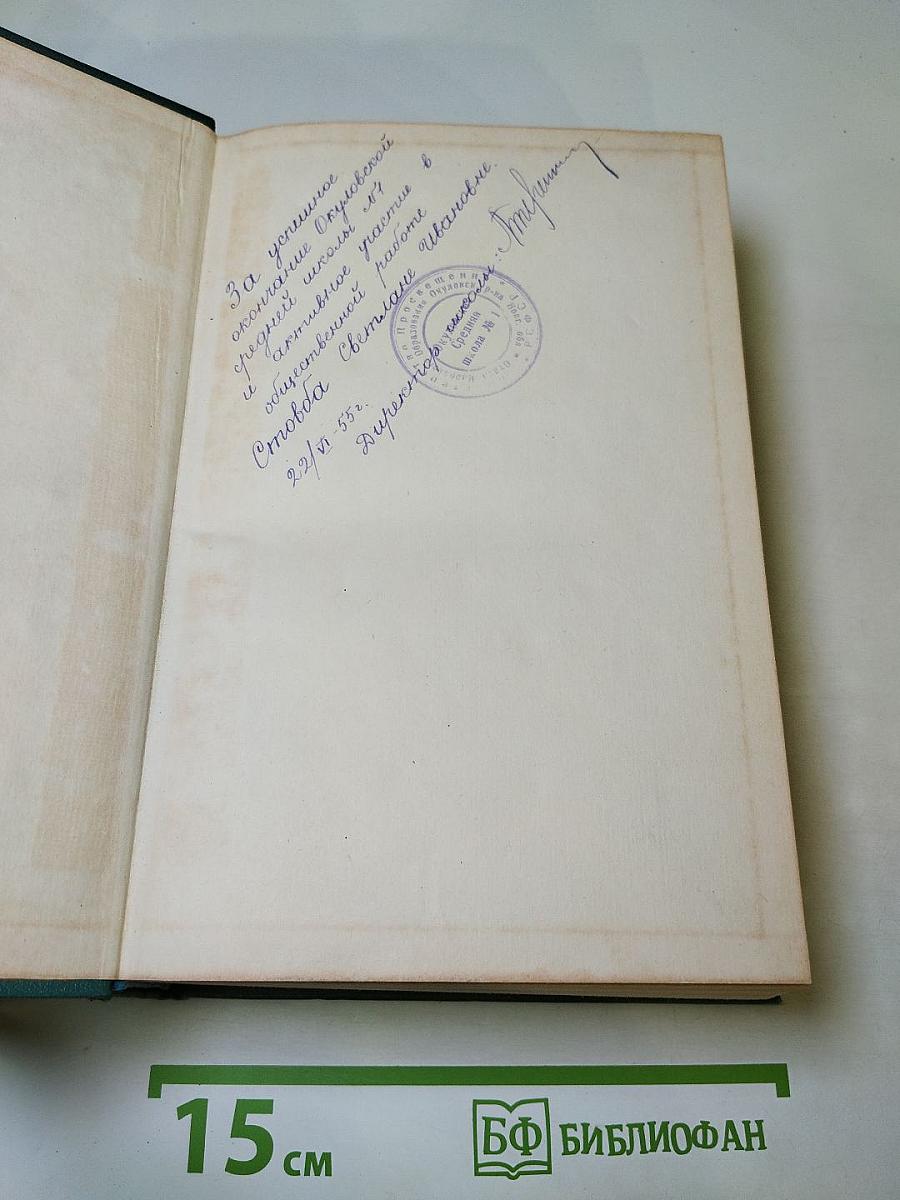 За успешное
окончание Окуловской
средней школы №1
и активное участие в
общественной работе
Стовба Светлане Ивановне.
22/VI-55г.
Директор школы:
Просвещения * РСФСР
Образования Окуловск р-на
Средняя
школа № 1
15 см
БФ БИБЛИОФАН